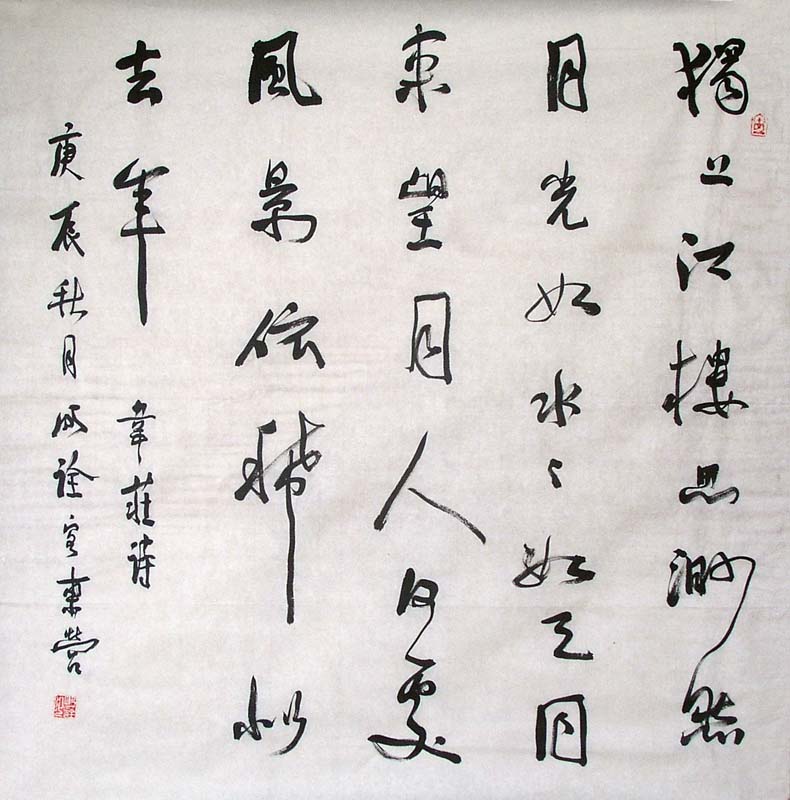 獨上江樓思渺然
月光如水々如天同
来望月人何處
風景依稀似
去年 韋莊詩
庚辰秋月明詮客東營